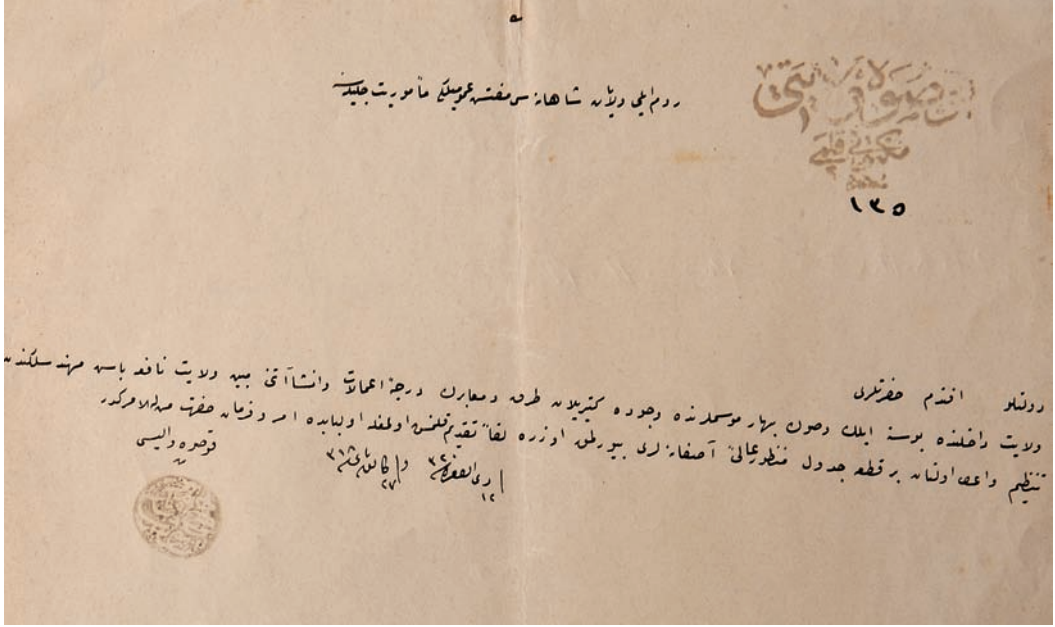 قوصوه ولايتی
مكتوبی قلمی
١٣٥
روم ایلی ولایات شاهانه‌سی مفتش عمومیلكی مأموریت جلیله‌سنه
دولتلو افندم حضرتلری
ولایت داخلنده بو سنه ایلك و صوك بهار موسملرنده وجوده كتیریلان طرق و معابرك درجۀ اعمالات و انشاآتنی مبین ولایت نافعه باش مهندسلكندن
تنظیم و اعطا اولنان بر قطعه جدول منظور عالئ آصفانه‌لری بیورلمق اوزره لفاً تقدیم قلنمش اولمغله اولبابده امر و فرمان حضرت من له الامركدر
ذی القعده ٣٢ و كانون ثانی ٣١
١٢ ٢٧
قوصوه والیسی